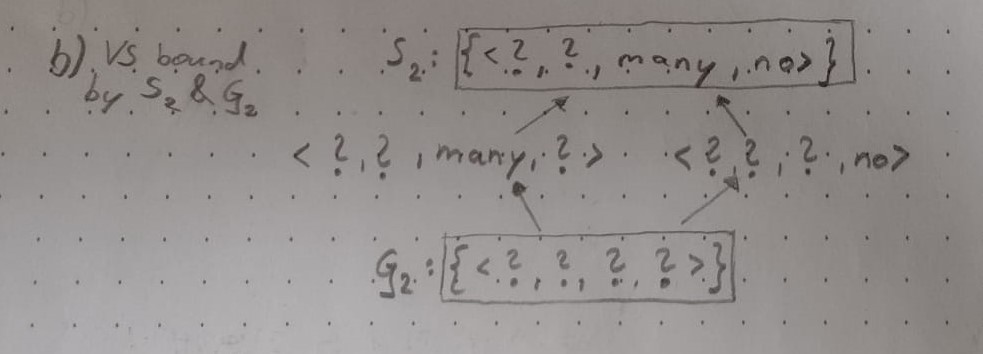 b) VS bound
by S₂ & G₂
S₂: {<?, ?, many, no>}
<?, ?, many, ?> <?, ?, ?, no>
G₂: {<?, ?, ?, ?>}